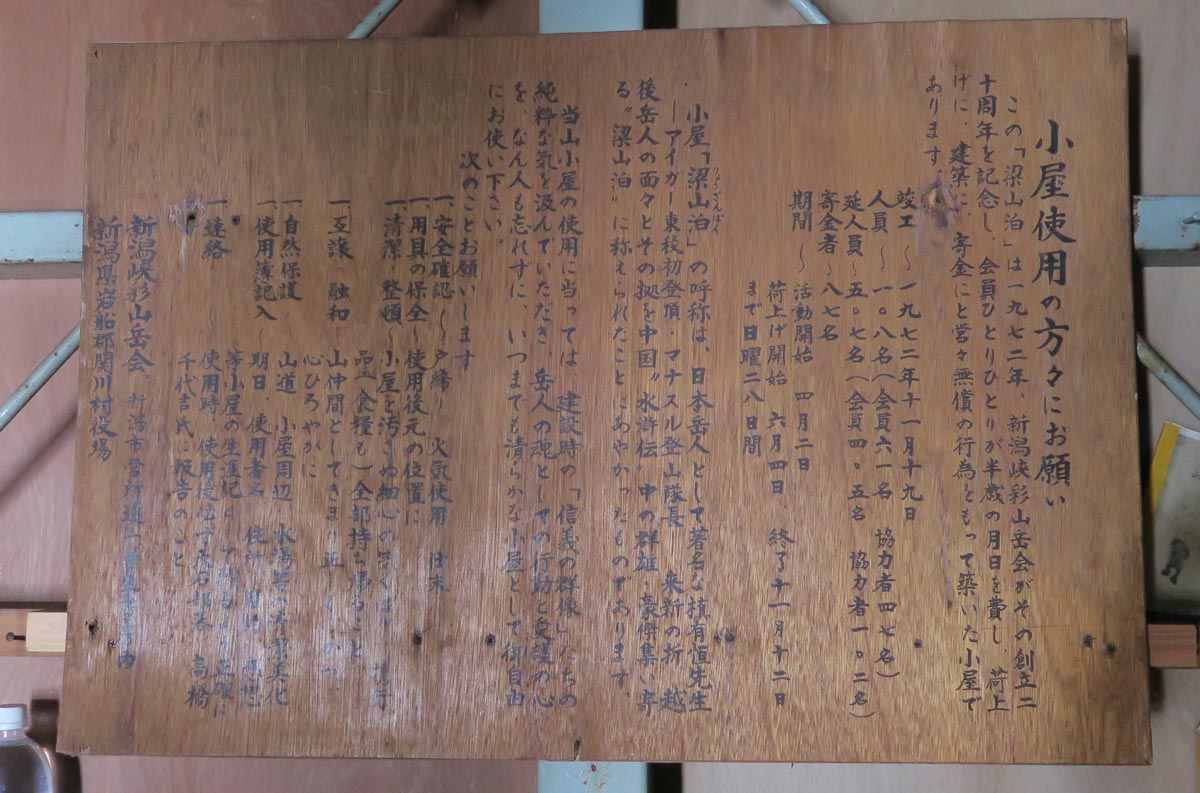 小屋使用の方々にお願い
この「梁山泊」は一九七二年、新潟峡彩山岳会がその創立二
十周年を記念し、会員ひとりひとりが半歳の月日を費し、荷上
げに、建築に、寄金にと営々無償の行為をもって築いた小屋で
あります。
竣工 〜 一九七二年十一月十九日
人員 〜 一〇八名(会員六一名 協力者四七名)
延人員〜五〇七名(会員四〇五名 協力者一〇二名)
寄金者〜八七名
期間 〜 活動開始 四月二日
荷上げ開始 六月四日、終了十一月十二日
まで日曜二八日間
小屋「梁山泊」の呼称は、日本岳人として著名な槙有恒先生
りょうざんぱく
―アイガー東稜初登頂・マナスル登山隊長― 来新の折、越
後岳人の面々とその拠を中国“水滸伝”中の群雄・豪傑集い寄
る“梁山泊”に称えられたことにあやかったものであります。
当山小屋の使用に当っては、建設時の「信義の群像」たちの
純粋な気を汲んでいただき、岳人の魂としての行動と愛護の心
を、なん人も忘れずに、いつまでも清らかな小屋として御自由
にお使い下さい。
次のことお願いします
一、安全確認 〜 戸締り 火気使用 仕末
一、用具の保全〜 使用後元の位置に
一、清潔・整頓〜 小屋を汚さぬ細心の 履行
品(食糧も)全部持ち帰ること
一、互譲 融和 山仲間として
心ひろやかに
一、自然保護〜 山道 小屋周辺 水場 美化
一、使用簿記入〜 期日、使用者名 住所
等小屋の生涯記 正確に
一、連絡 〜 使用時、使用後必ず大石部落 高橋
千代吉氏に報告のこと
新潟峡彩山岳会、新潟市営所通
新潟県岩船郡関川村役場